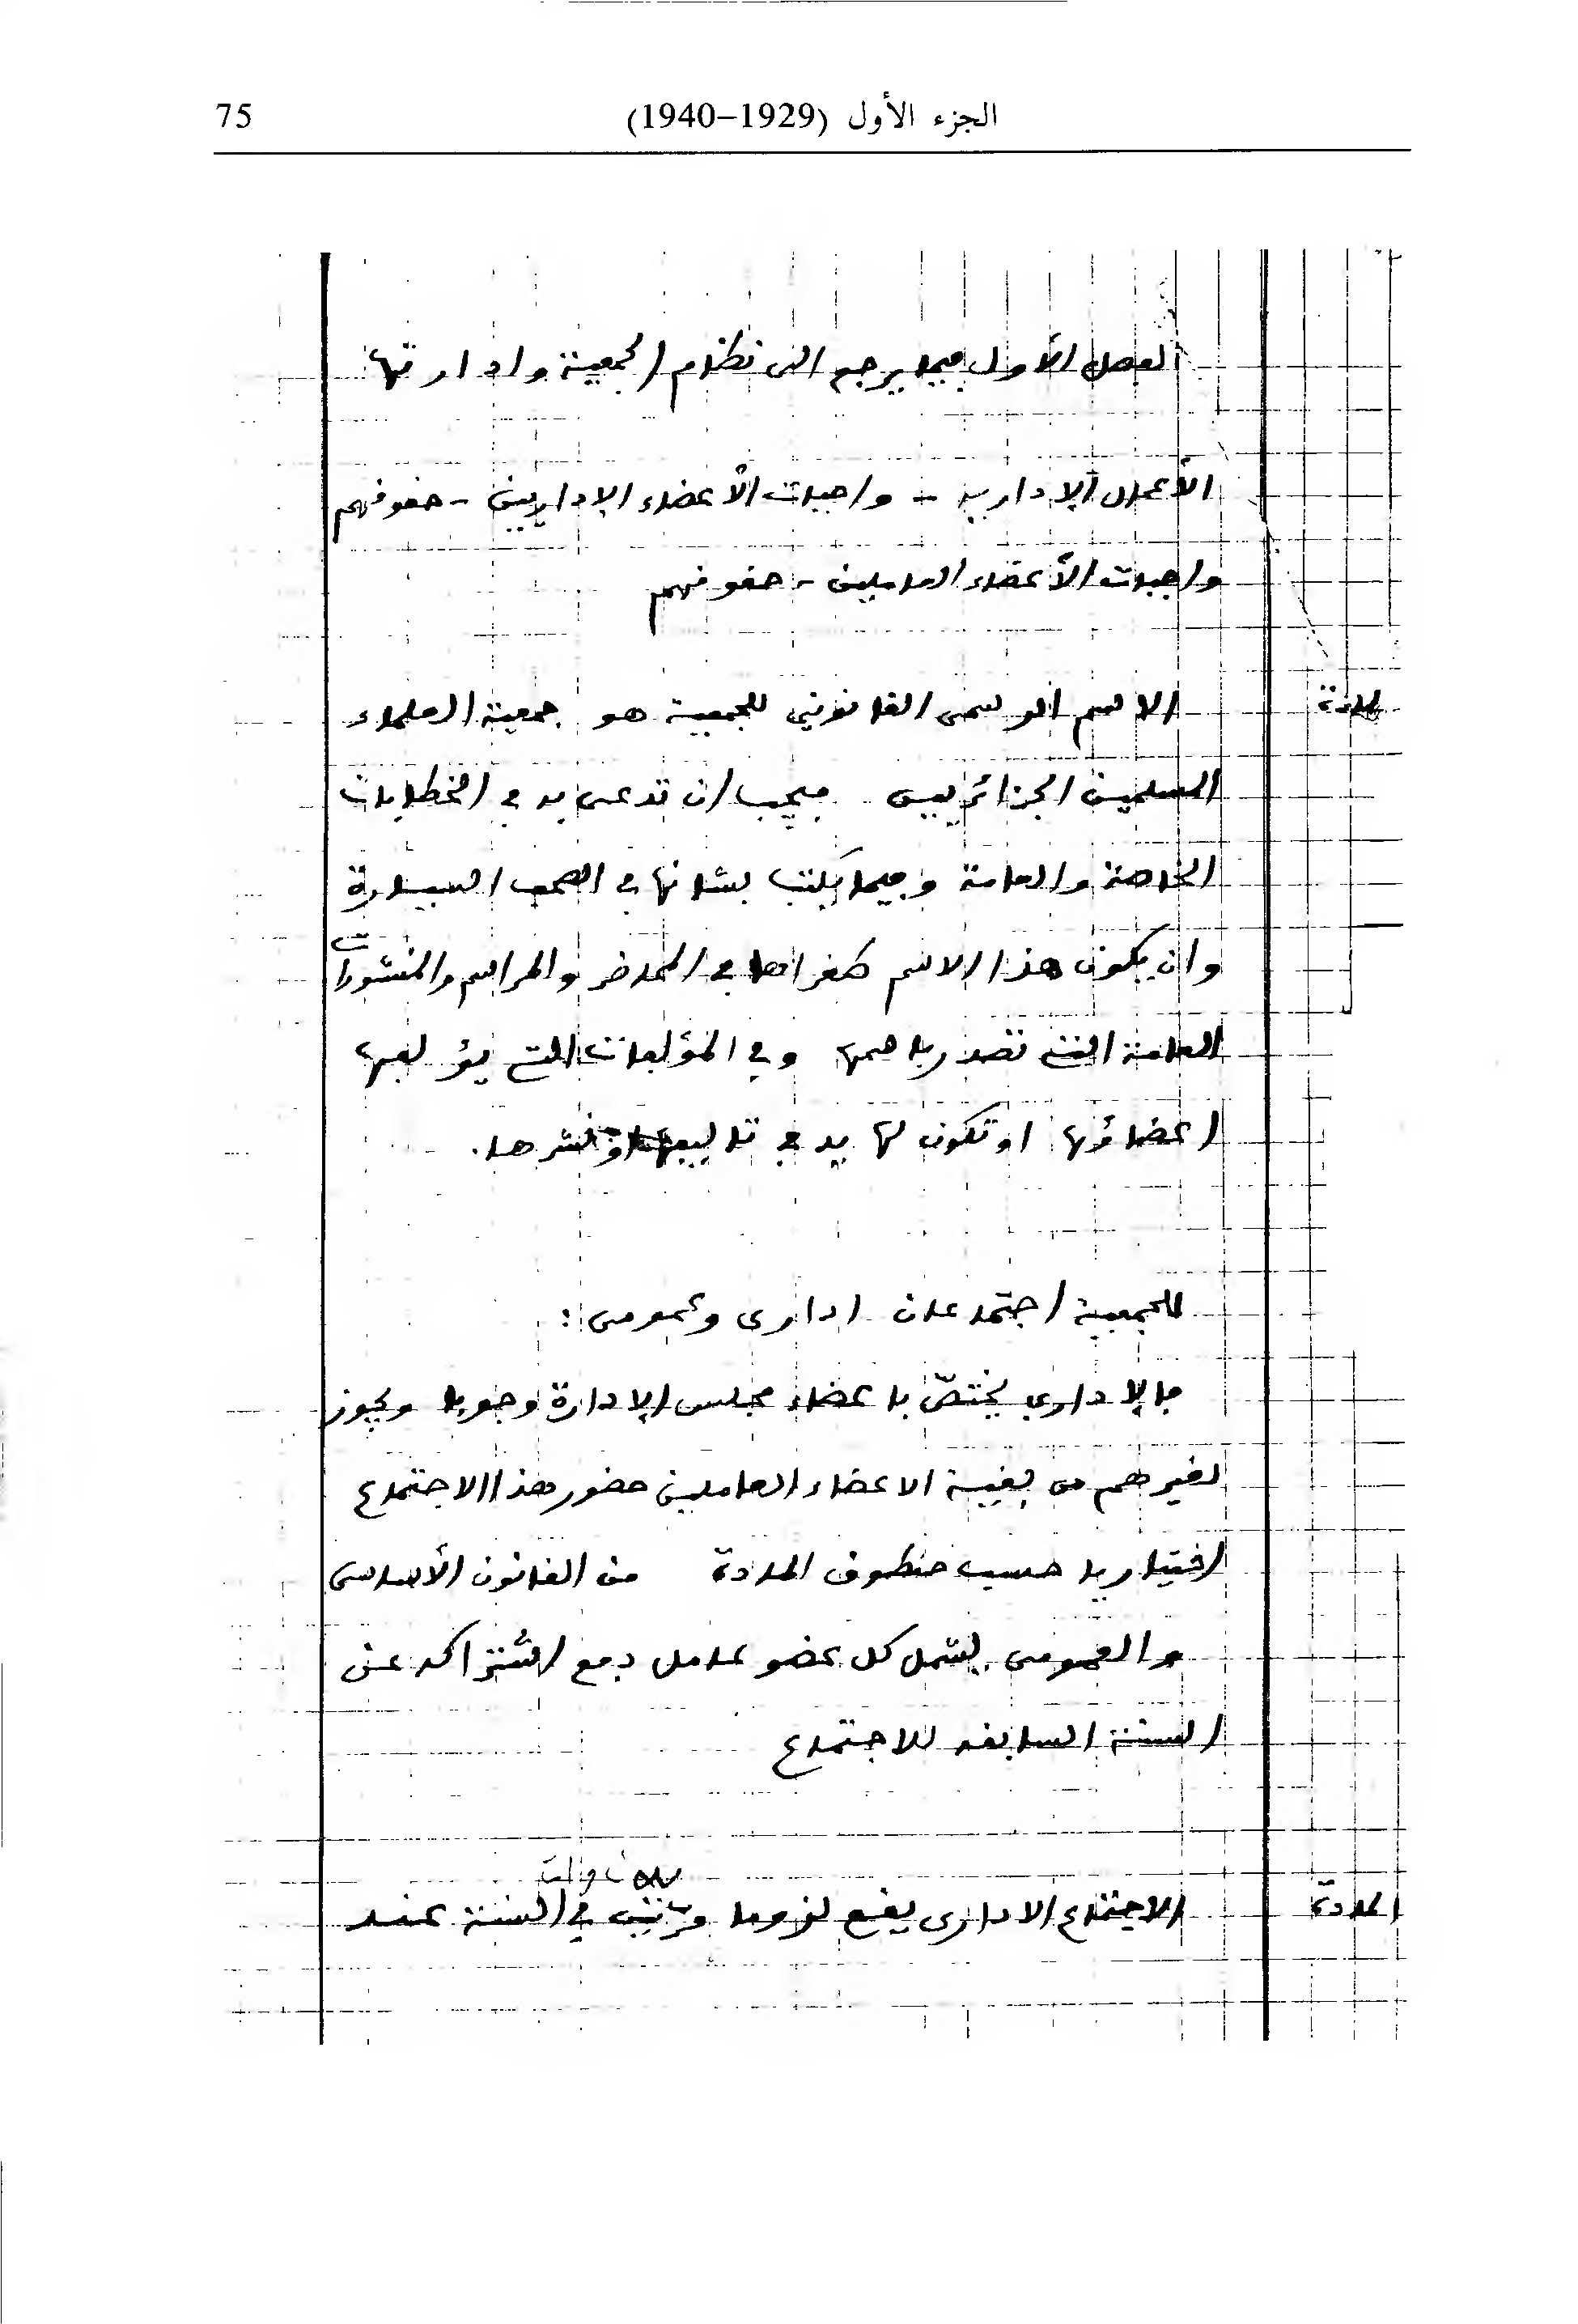 الجزء الأول (1929–1940)
75
الفصل الأول فيما يرجع الى نظام الجمعية وادارتها
الأعمال الإدارية - واجبات الأعضاء الإداريين - حقوقهم
واجبات الأعضاء العاملين - حقوقهم
المادة
الاسم الرسمى القانوني للجمعية هو جمعية العلماء
المسلمين الجزائريين فيجب ان تدعى به في الخطابات
الخاصة والعامة وفيما يكتب بشانها في الصحف السيارة
وان يكون هذا الاسم في المحاضر والمراسم والمنشورات
العامة التي تصدر باسمها وفي المؤلفات التي يؤلفها
اعضاؤها او تكون لها يد في تاليفها او نشرها.
للجمعية اجتماعان ادارى وعمومى:
فالإداري يختصّ باعضاء مجلس الإدارة وجوبا ويجوز
لغيرهم من بقية الاعضاء العاملين حضور هذا الاجتماع
اختياريا حسب منطوق المادة من القانون الأساسى
والعمومى يشمل كل عضو عامل دفع اشتراكه عن
السنة السابقة للاجتماع
المادة
الاجتماع الادارى يقع لزوما مرتين في السنة عند